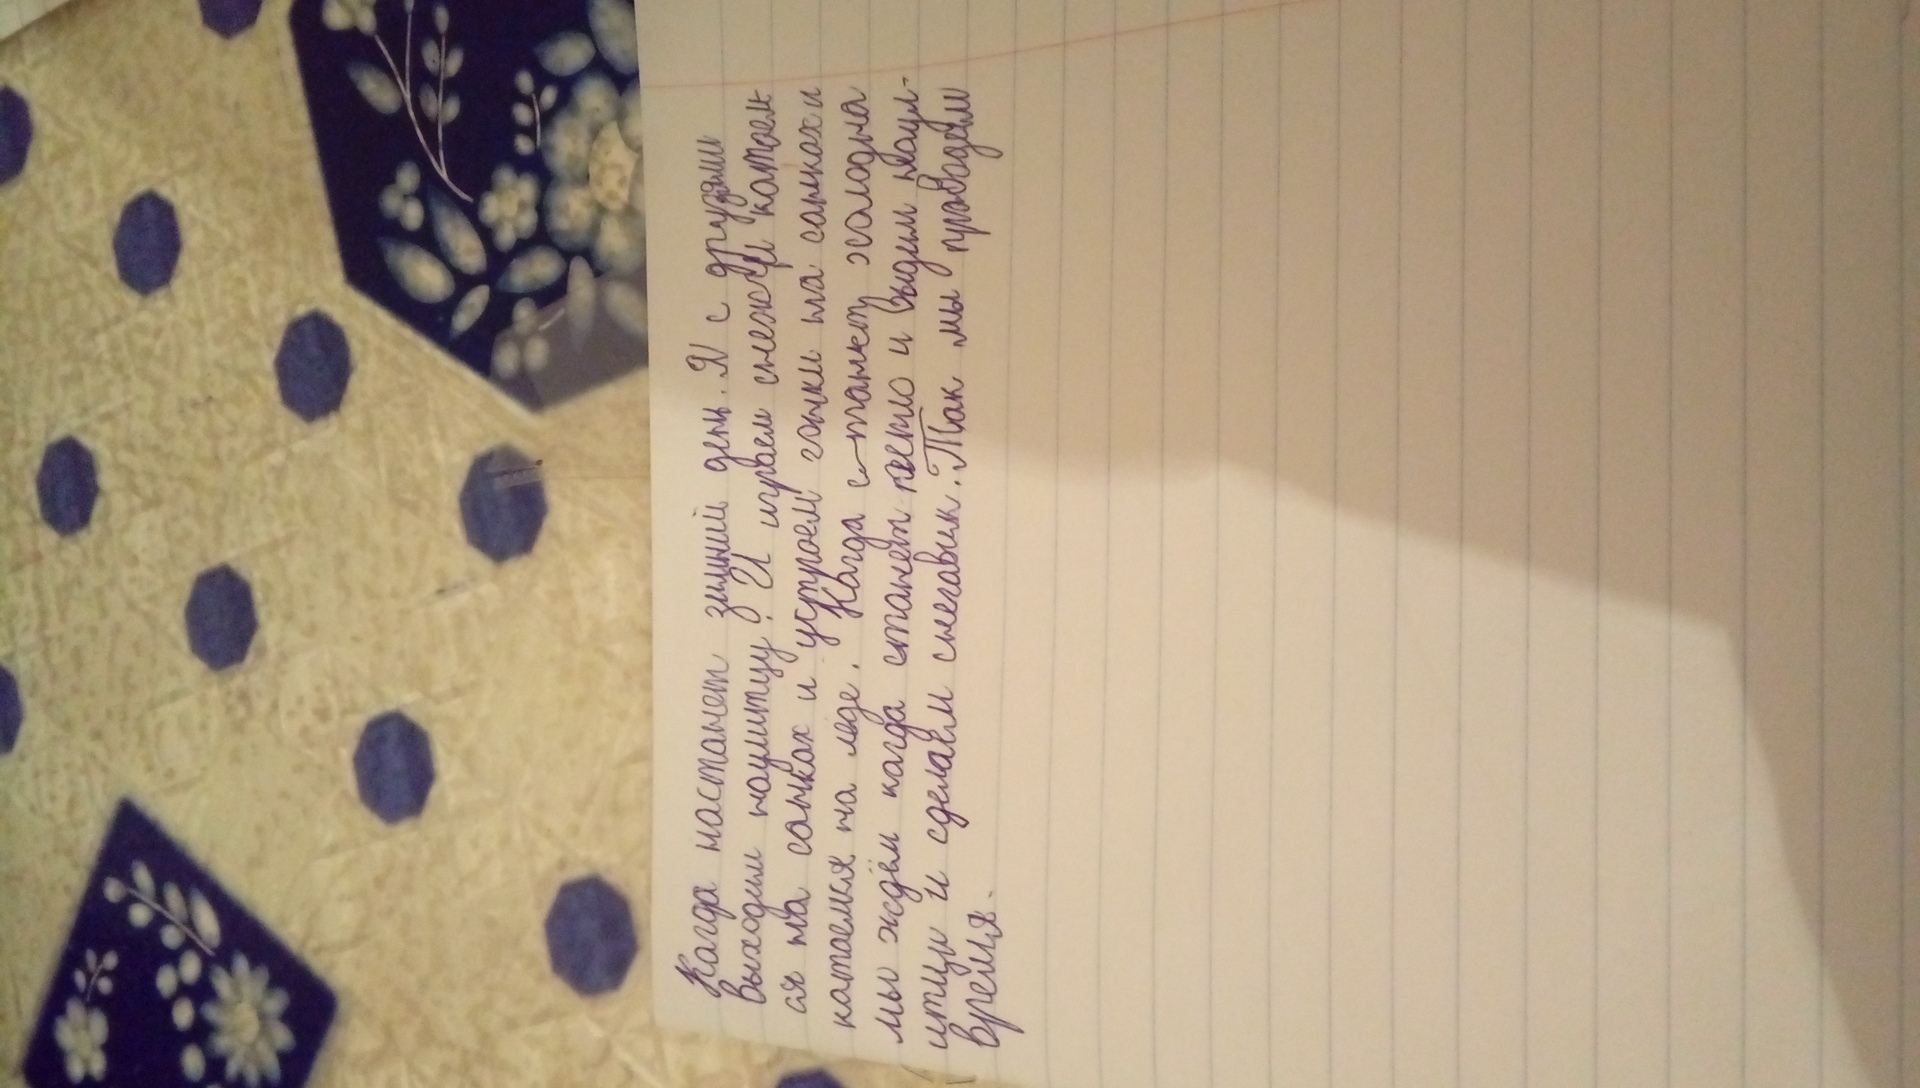 Кагда настанет зимний день. Я с друзями
выходим наулитцу. И играем снежки катаем
ся на санках и устроем гонки на санках и
катаемся на леде. Кагда станет холодна
мы ждём кагда станет тепло и выдим наул-
итцу и сделаем снегавик. Так мы праводим
время.